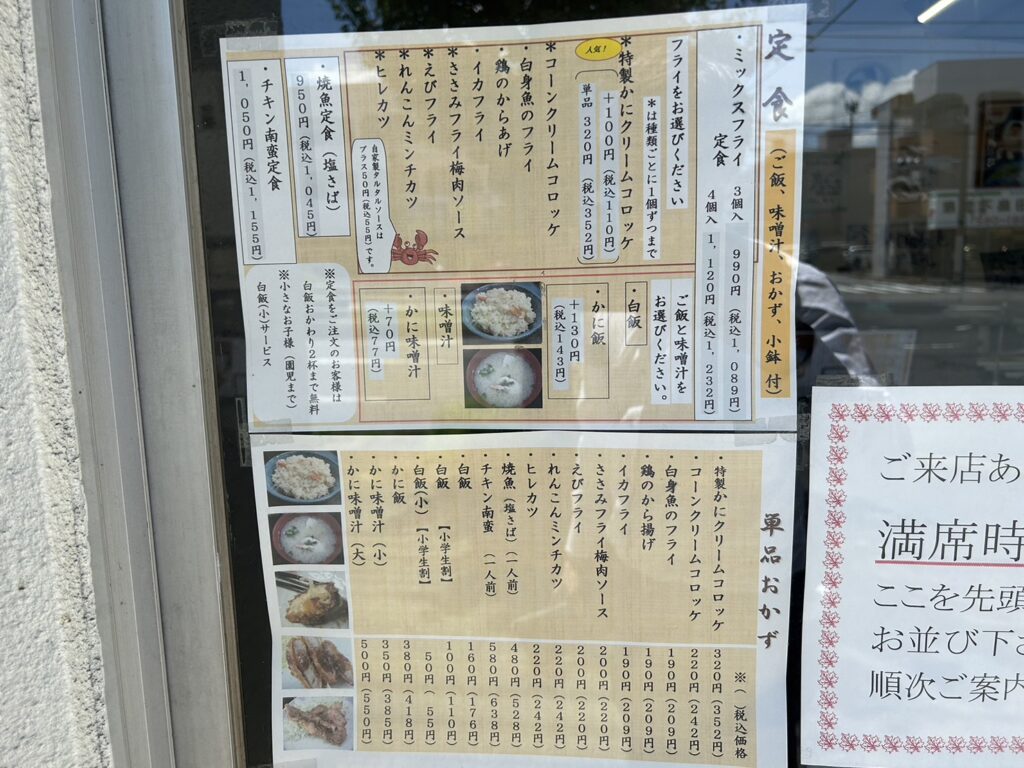 定食
(ご飯、味噌汁、おかず、小鉢 付)
・ミックスフライ定食
3個入 990円(税込1,089円)
4個入 1,120円(税込1,232円)
フライをお選びください
*は種類ごとに1個ずつまで
人気！
*特製かにクリームコロッケ
+100円(税込110円)
単品 320円(税込352円)
*コーンクリームコロッケ
・白身魚のフライ
・鶏のからあげ
・イカフライ
*ささみフライ梅肉ソース
*えびフライ
*れんこんミンチカツ
*ヒレカツ
自家製タルタルソースは
プラス50円(税込55円)です。
ご飯と味噌汁を
お選びください。
・白飯
・かに飯
+130円
(税込143円)
・味噌汁
・かに味噌汁
+70円
(税込77円)
・焼魚定食(塩さば)
950円(税込1,045円)
・チキン南蛮定食
1,050円(税込1,155円)
※定食をご注文のお客様は
白飯おかわり2杯まで無料
※小さなお子様(園児まで)
白飯(小)サービス
単品おかず
※( )税込価格
・特製かにクリームコロッケ 320円(352円)
・コーンクリームコロッケ 220円(242円)
・白身魚のフライ 190円(209円)
・鶏のから揚げ 190円(209円)
・イカフライ 190円(209円)
・ささみフライ梅肉ソース 200円(220円)
・えびフライ 200円(220円)
・れんこんミンチカツ 220円(242円)
・ヒレカツ 220円(242円)
・焼魚(塩さば)(一人前) 480円(528円)
・チキン南蛮 (一人前) 580円(638円)
・白飯 160円(176円)
・白飯 【小学生割】 100円(110円)
・白飯(小)【小学生割】 50円(55円)
・かに飯 380円(418円)
・かに味噌汁(小) 350円(385円)
・かに味噌汁(大) 500円(550円)
ご来店あ
満席時
ここを先頭
お並び下さ
順次ご案内